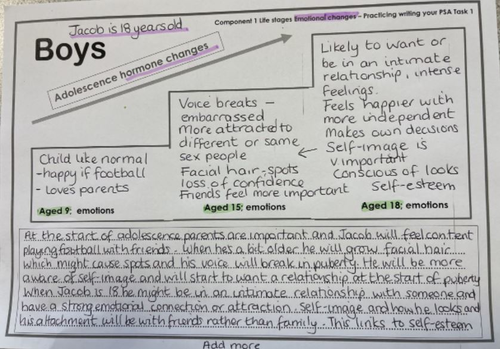 Jacob is 18 years old
Component 1 Life stages Emotional changes – Practicing writing your PSA Task 1
Boys
Adolescence hormone changes
Likely to want or
be in an intimate
relationship, intense
feelings.
Feels happier with
more independent
Makes own decisions
Self-image is
v important
Conscious of looks
Self-esteem
Voice breaks –
embarrassed
more attracted to
different or same
sex people
Facial hair-spots
loss of confidence
Friends feel more important
Child like normal
-happy if football
- loves parents
Aged 9: emotions
Aged 15: emotions
Aged 18: emotions
At the start of adolescence parents are important and Jacob will feel content
playing football with friends. When hes a bit older he will grow facial hair
which might cause spots and his voice will break in puberty. He will be more
aware of self-image and will start to want a relationship at the start of puberty
When Jacob is 18 he might be in an intimate relationship with someone and
have a strong emotional connection or attraction. Self-image and how he looks and
his attachment will be with friends rather than family. This links to self-esteem
Add more